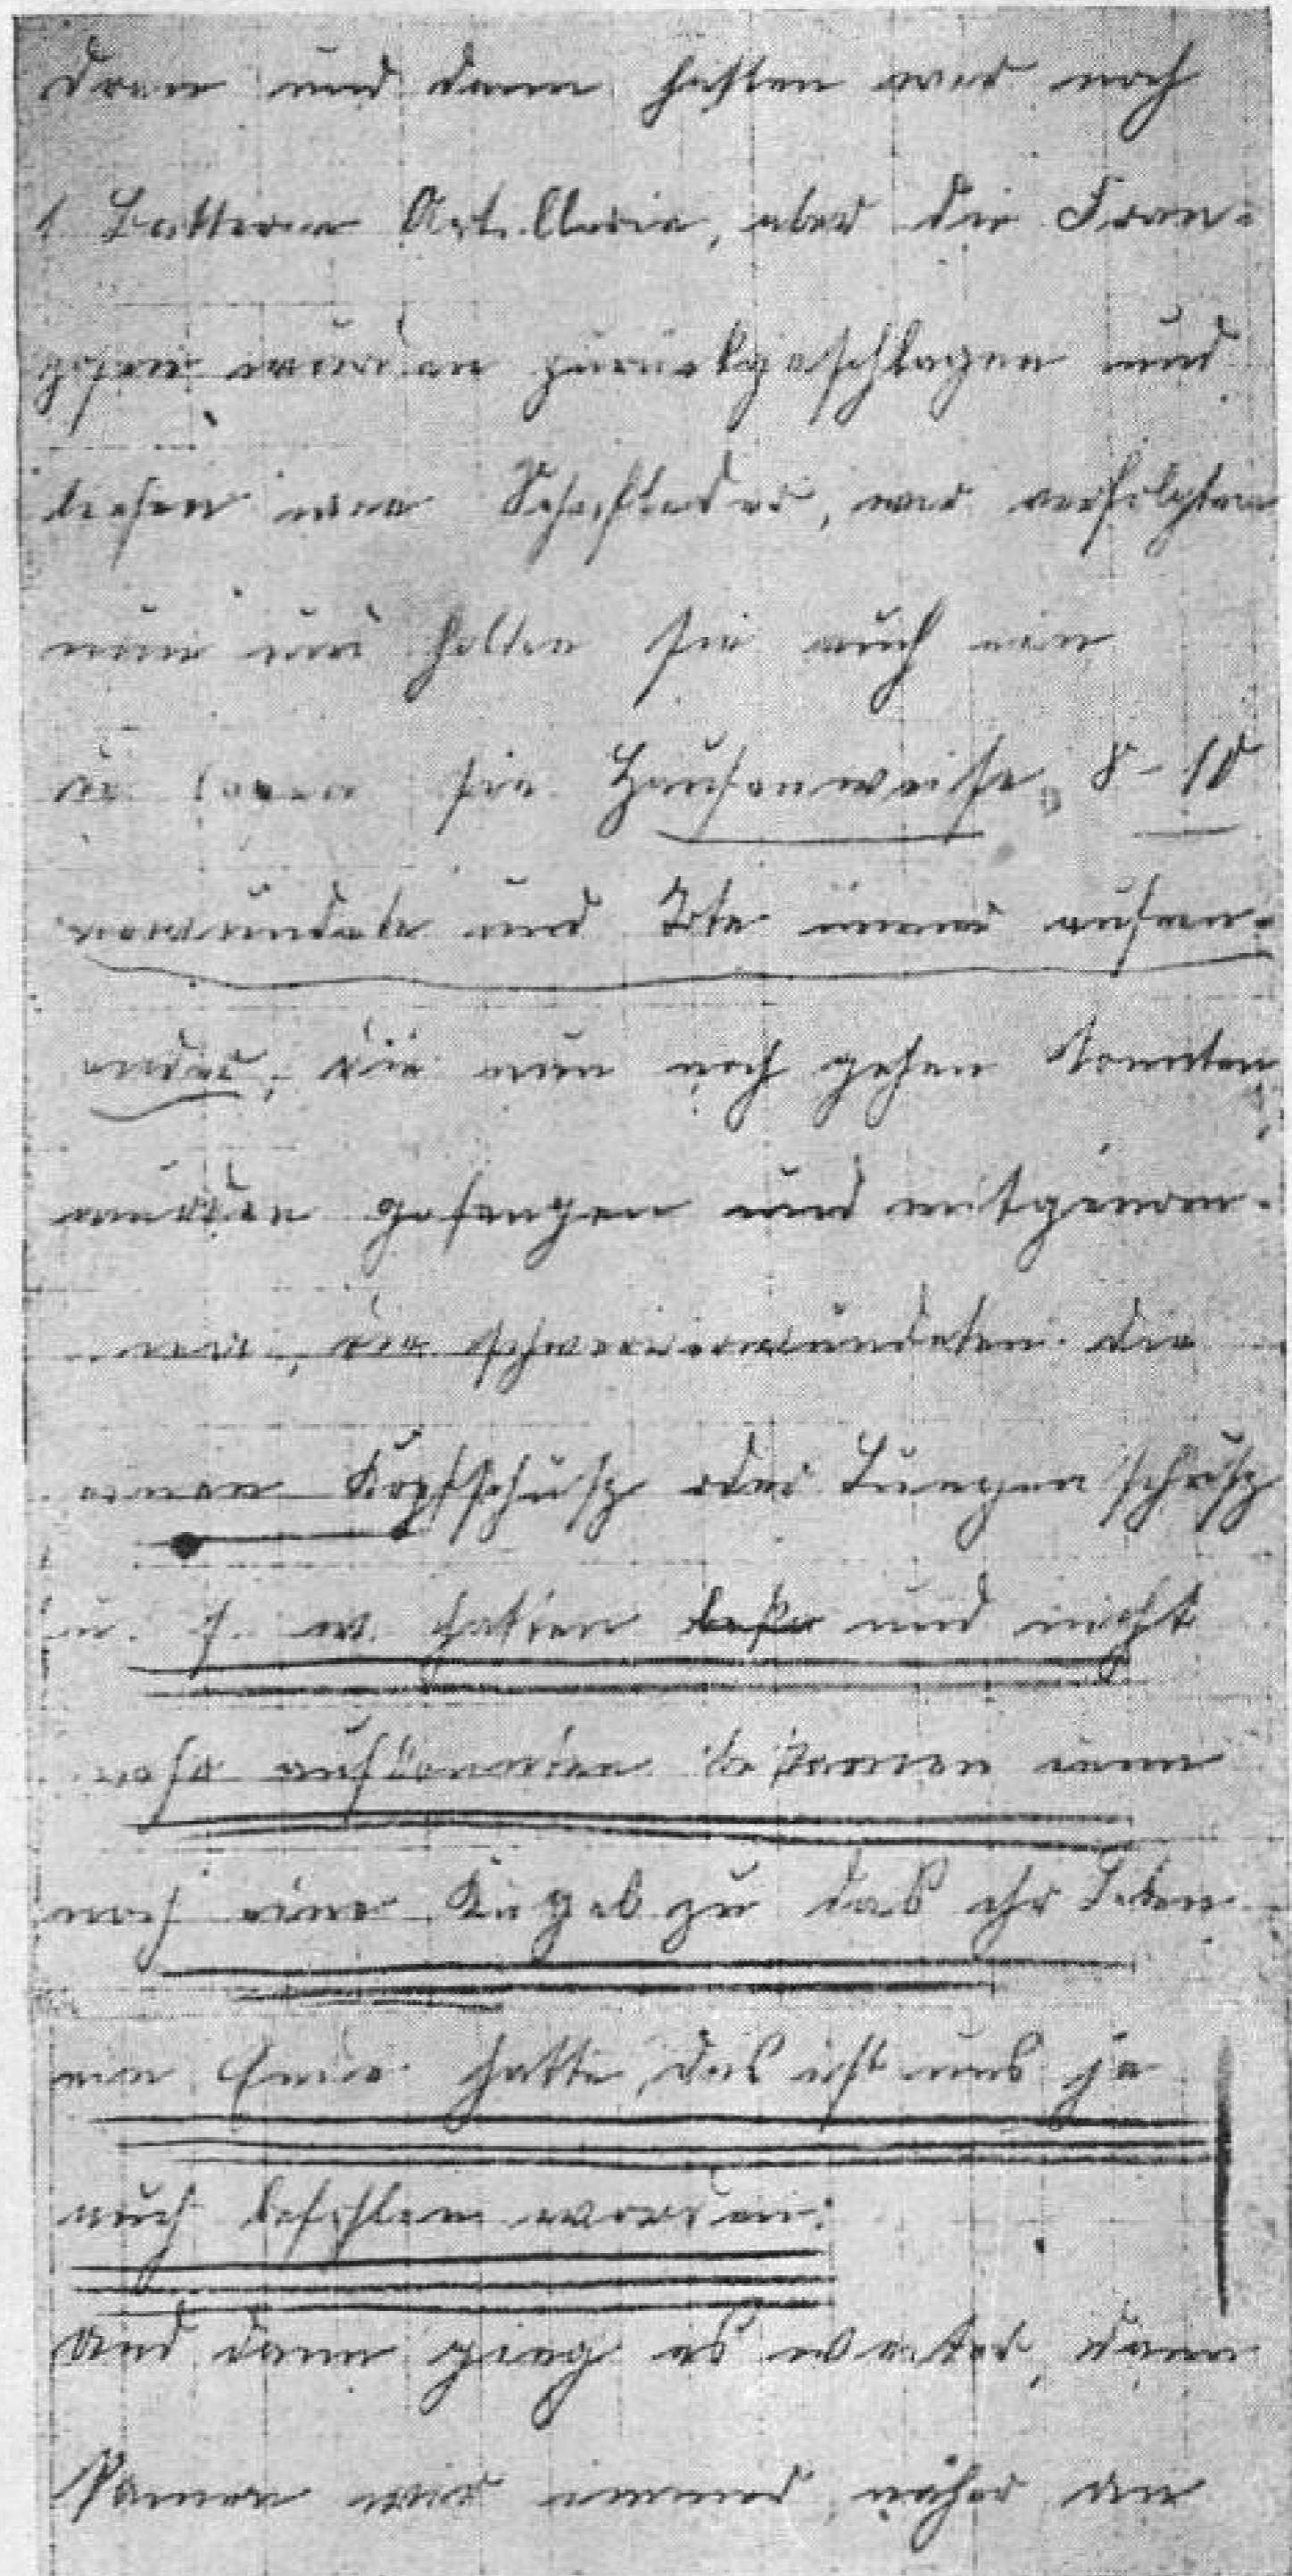 dran und dann hatten wir noch
1 Batterie Artillerie, aber die Fran-
zosen wurden zurückgeschlagen und
liefen wie, wir verfolgten
nun und holten sie auch ein
da lagen sie Haufenweise 8-10
verwundete und Tote immer aufein-
ander, die nun noch gehen konnten
wurden gefangen und mitgenom-
men, die schwerverwundeten die
einen Kopfschuß oder Lungenschuß
u. s. w. hatten und nicht
mehr aufkonnten bekamen nun
noch eine Kugel zu das ihr Leben
ein Ende hatte, das ist uns ja
auch befohlen worden.
Und dann ging es weiter, dann
kamen wir immer näher an